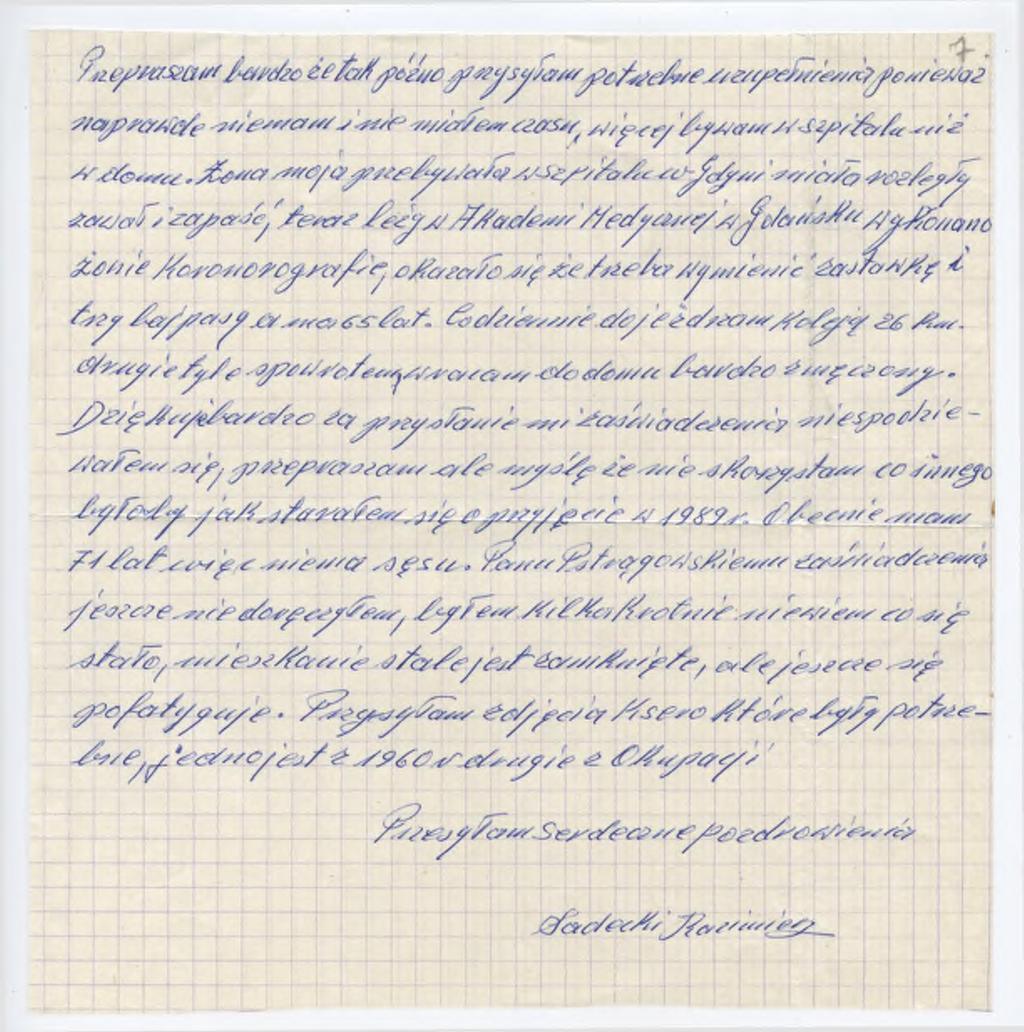 7.
Przepraszam bardzo że tak późno przysyłam potrzebne uzupełnienia ponieważ
naprawdę niemam i nie miałem czasu, więcej bywam w szpitalu niż
w domu. Żona moja przebywała w szpitalu w Gdyni miała rozległy
zawał i zapaść, teraz leży w Akademi Medycznej w Gdańsku wykonano
żonie Koronorografie, okazało się że trzeba wymienić zastawkę i
trzy bajpasy a ma 65 lat. Codziennie dojeżdzam koleją 26 km.
drugie tyle spowrotem, wracam do domu bardzo zmęczony.
Dziękuję bardzo za przysłanie mi zaświadczenia niespodzie-
wałem się, przepraszam ale myślę że nie skorzystam co innego
byłoby jak starałem się o przyjęcie w 1989 r. Obecnie mam
71 lat więc niema sęsu. Panu Pstrągowskiemu zaświadczenia
jeszcze nie doręczyłem, byłem kilkakrotnie niewiem co się
stało, mieszkanie stale jest zamknięte, ale jeszcze się
pofatyguje. Przysyłam zdjęcia ksero które były potrze-
bne, jedno jest z 1960 r drugie z Okupacji
Przesyłam serdeczne pozdrowienia
Sadecki Kazimierz